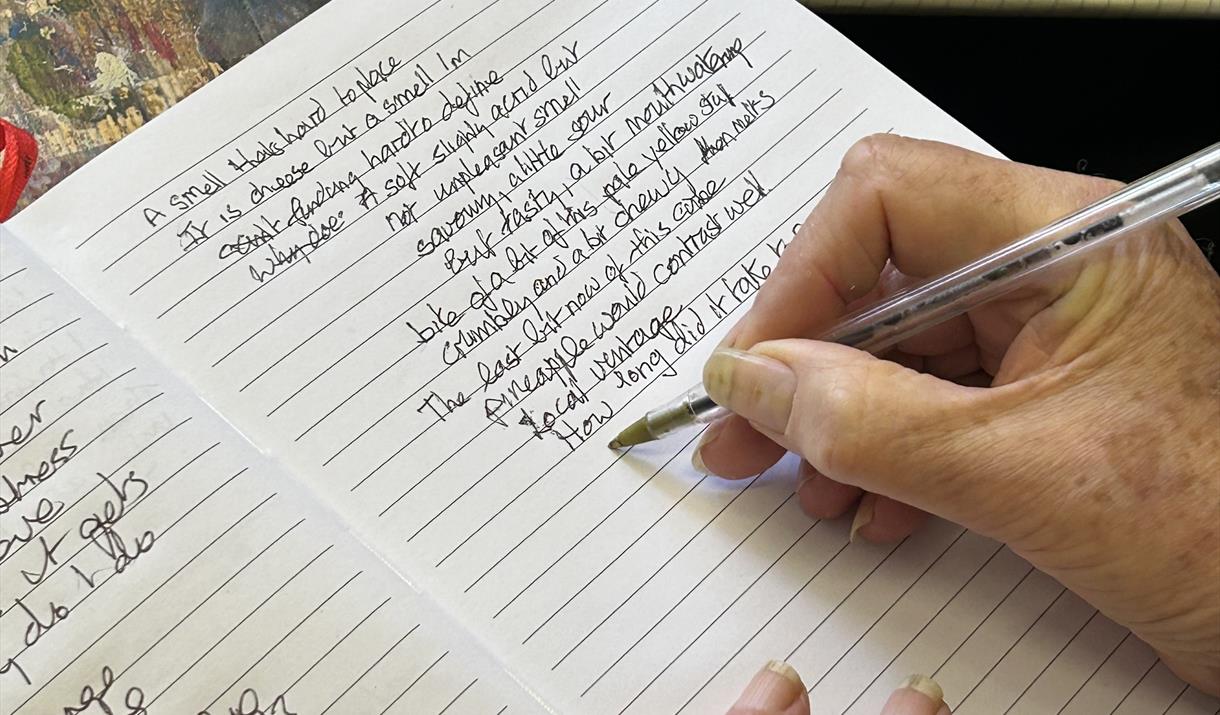 A smell thats hard to place
It is cheese but a smell Im
finding hard to define
A soft slighly acrid but
not unpleasant smell
savoury, a little sour
But tasty, a bit mouthwatering
bite of a bit of this pale yellow stuff
crumbly and a bit chewy then melts
The last but now of this cube
pineapple would contrast well.
local ventage
How long did it take to
ove
it gets
do